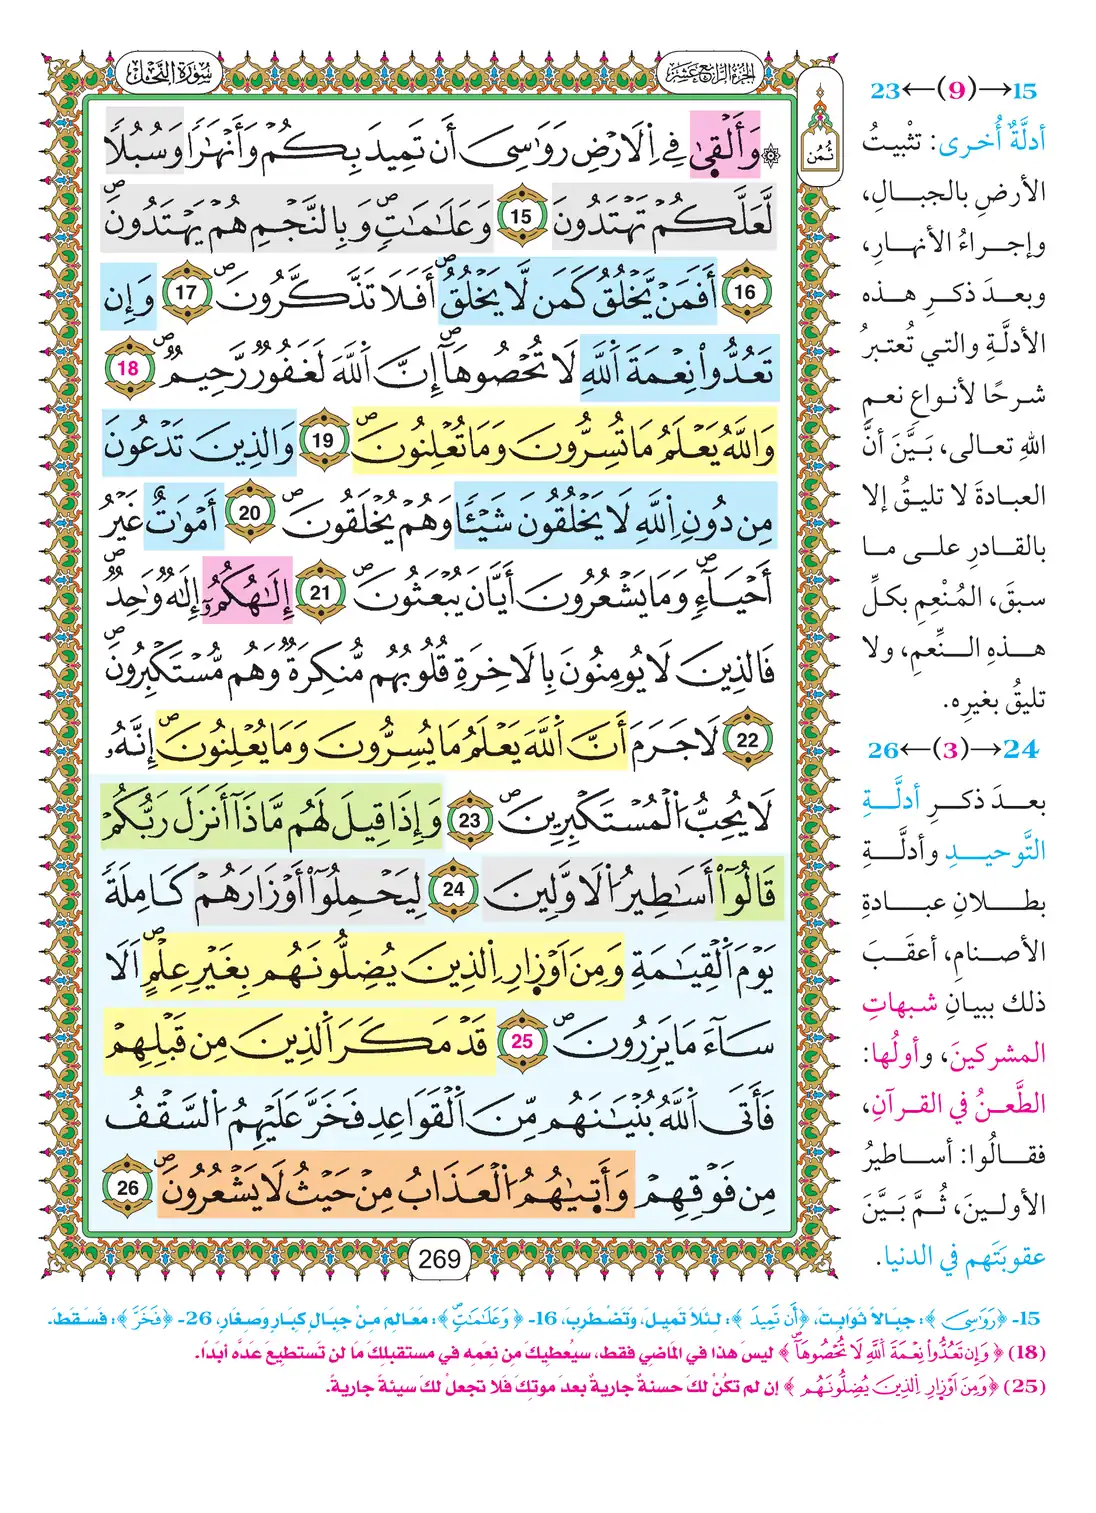 سُورَةُ النَّحْلِ
الجُزْءُ الرَّابِعَ عَشَرَ
ثُمُن
۞ وَأَلْقَىٰ فِي اِ۬لَارْضِ رَوَٰسِيَ أَن تَمِيدَ بِكُمْ وَأَنْهَٰرٗا وَسُبُلٗا
لَّعَلَّكُمْ تَهْتَدُونَ 15 وَعَلَٰمَٰتٖۖ وَبِالنَّجْمِ هُمْ يَهْتَدُونَۖ
16 أَفَمَنْ يَّخْلُقُ كَمَن لَّا يَخْلُقُۖ أَفَلَا تَذَّكَّرُونَۖ 17 وَإِن
تَعُدُّواْ نِعْمَةَ اَ۬للَّهِ لَا تُحْصُوهَآۖ إِنَّ اَ۬للَّهَ لَغَفُورٞ رَّحِيمٞۖ 18
وَاللَّهُ يَعْلَمُ مَا تُسِرُّونَ وَمَا تُعْلِنُونَۖ 19 وَالذِينَ تَدْعُونَ
مِن دُونِ اِ۬للَّهِ لَا يَخْلُقُونَ شَيْـٔٗا وَهُمْ يُخْلَقُونَۖ 20 أَمْوَٰتٌ غَيْرُ
أَحْيَآءٖۖ وَمَا يَشْعُرُونَ أَيَّانَ يُبْعَثُونَۖ 21 إِلَٰهُكُمُۥٓ إِلَٰهٞ وَٰحِدٞۖ
فَالذِينَ لَا يُومِنُونَ بِالَاخِرَةِ قُلُوبُهُم مُّنكِرَةٞ وَهُم مُّسْتَكْبِرُونَۖ
22 لَا جَرَمَ أَنَّ اَ۬للَّهَ يَعْلَمُ مَا يُسِرُّونَ وَمَا يُعْلِنُونَۖ إِنَّهُۥ
لَا يُحِبُّ اُ۬لْمُسْتَكْبِرِينَۖ 23 وَإِذَا قِيلَ لَهُم مَّاذَآ أَنزَلَ رَبُّكُمْ
قَالُوٓاْ أَسَٰطِيرُ اُ۬لَاوَّلِينَ 24 لِيَحْمِلُوٓاْ أَوْزَارَهُمْ كَامِلَةٗ
يَوْمَ اَ۬لْقِيَٰمَةِ وَمِنَ اَوْزَارِ اِ۬لذِينَ يُضِلُّونَهُم بِغَيْرِ عِلْمٍۖ اَلَا
سَآءَ مَا يَزِرُونَۖ 25 قَدْ مَكَرَ اَ۬لذِينَ مِن قَبْلِهِمْ
فَأَتَى اَ۬للَّهُ بُنْيَٰنَهُم مِّنَ اَ۬لْقَوَاعِدِ فَخَرَّ عَلَيْهِمُ اُ۬لسَّقْفُ
مِن فَوْقِهِمْ وَأَتٜىٰهُمُ اُ۬لْعَذَابُ مِنْ حَيْثُ لَا يَشْعُرُونَۖ 26
269
15→(9)←23
أدلَّةٌ أُخرى: تثْبيتُ
الأرضِ بالجبالِ،
وإجراءُ الأنهارِ،
وبعدَ ذكرِ هذه
الأدلَّةِ والتي تُعتبرُ
شرحًا لأنواعِ نعمِ
اللهِ تعالى، بَيَّنَ أنَّ
العبادةَ لا تليقُ إلا
بالقادرِ على ما
سبقَ، المُنْعِمِ بكلِّ
هذهِ النِّعمِ، ولا
تليقُ بغيرِه.
24→(3)←26
بعدَ ذكرِ أدلَّةِ
التَّوحيدِ وأدلَّةِ
بطلانِ عبادةِ
الأصنامِ، أعقَبَ
ذلك ببيانِ شبهاتِ
المشركينَ، وأولُها:
الطَّعنُ في القرآنِ،
فقالُوا: أساطيرُ
الأولينَ، ثُمَّ بَيَّنَ
عقوبتَهم في الدنيا.
15- ﴿رَوَٰسِيَ﴾: جبَالاً ثَوَابِتَ، ﴿أَن تَمِيدَ﴾: لِئَلاَّ تَمِيلَ، وَتَضْطَرِبَ، 16- ﴿وَعَلَٰمَٰتٖۖ﴾: مَعَالِمَ مِنْ جِبَالٍ كِبَارٍ وَصِغَارٍ، 26- ﴿فَخَرَّ﴾: فَسَقَطَ.
(18) ﴿وَإِن تَعُدُّواْ نِعْمَةَ اَ۬للَّهِ لَا تُحْصُوهَآۖ﴾ ليسَ هذا في الماضي فقط، سيُعطيكَ من نعمِه في مستقبلِكَ مَا لن تَستطيعَ عدَّه أبدَاً.
(25) ﴿وَمِنَ اَوْزَارِ اِ۬لذِينَ يُضِلُّونَهُم﴾ إن لم تكُنْ لكَ حسنةٌ جاريةٌ بعدَ موتِكَ فَلا تجعلْ لكَ سيئةً جاريةً.